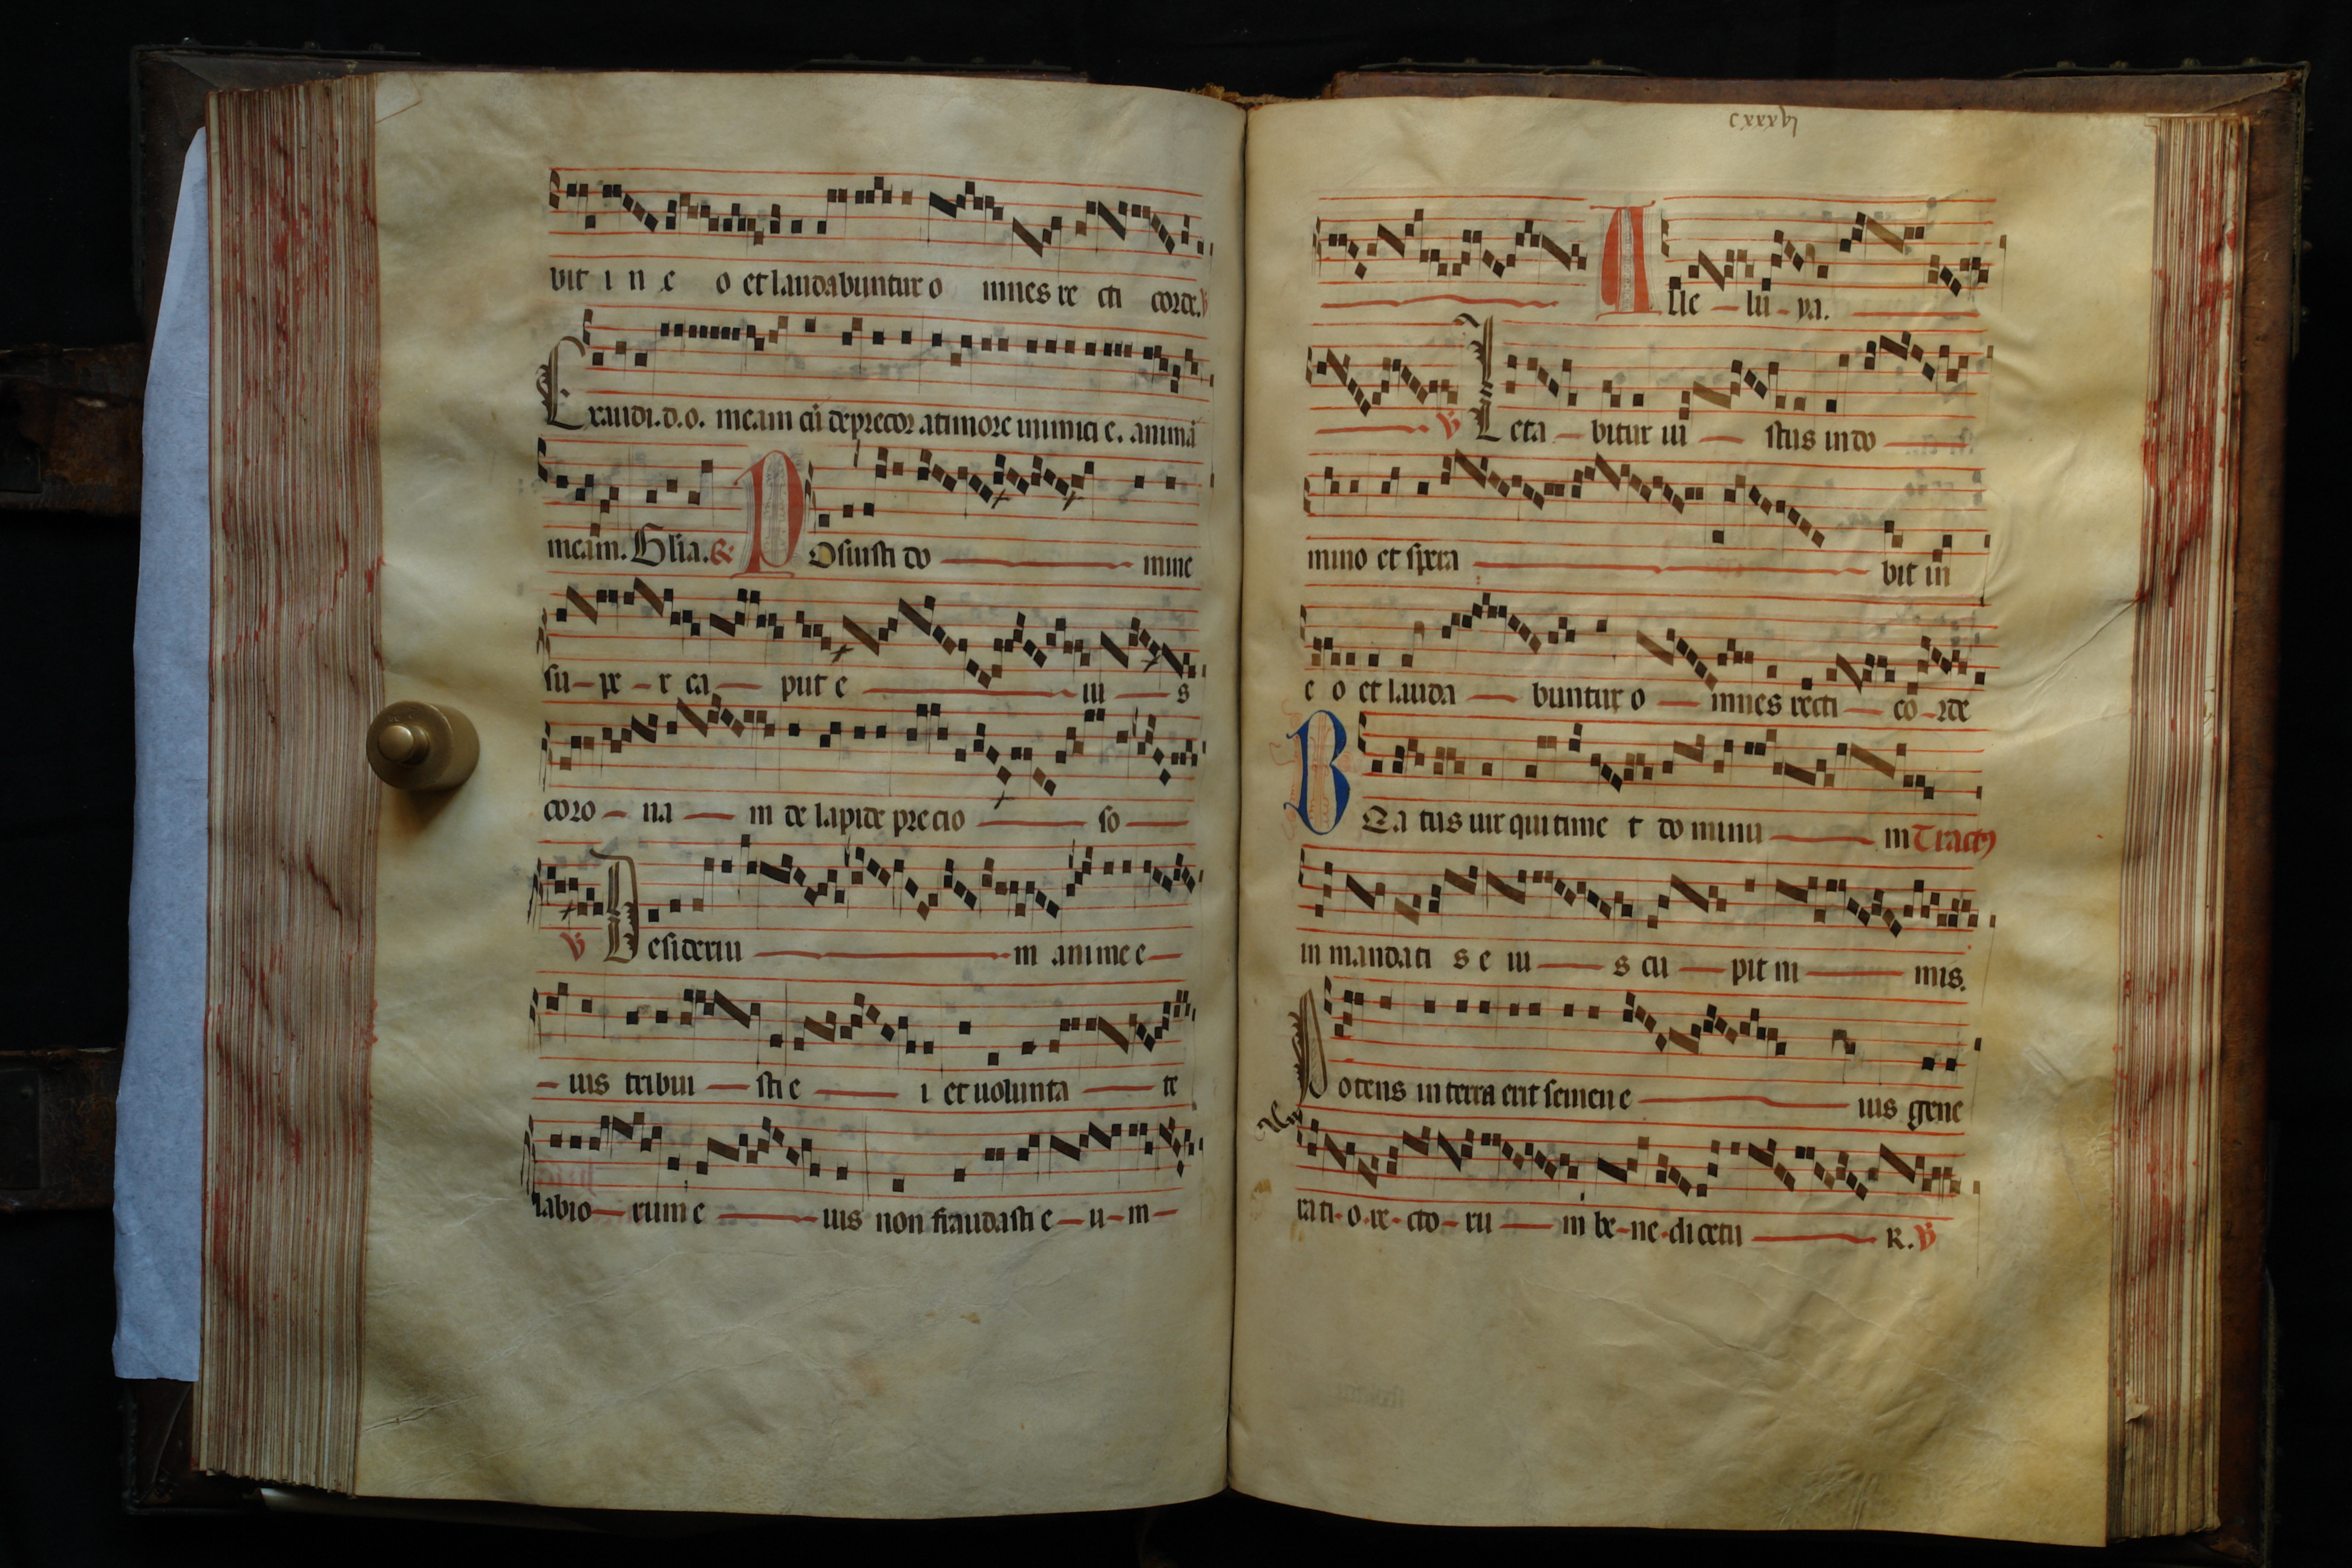 vit i n e o et laudabuntur o mnes re cti corde. V
Exaudi.d.o. meam cū deprecor atimore inimici e. animā
meam. Glia. R Posuisti do mine
su pe r ca put e iu s
coro na m de lapide precio so
V Desideriu m anime e
ius tribui sti e i et uolunta te
labio rum e ius non fraudasti e u m
cxxxxl
Alle lu ya.
V Leta bitur iu stus in do
mino et spera bit in
e o et lauda buntur o mnes recti co rde
BEa tus uir qui time t do minu m Tractꝰ
in mandati s e iu s cu pit ni mis.
Potens in terra erit semen e ius gene
rati o re cto ru m be ne dicetu R. V